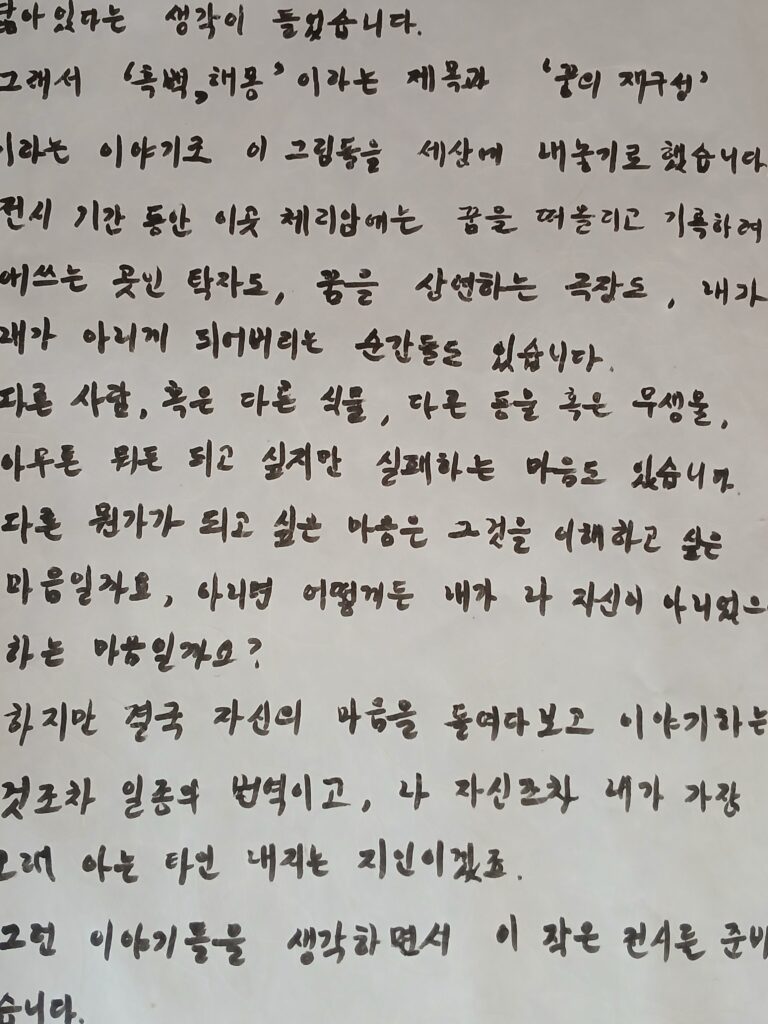 닮아있다는 생각이 들었습니다.
그래서 '흑백,해몽'이라는 제목과 '꿈의 재구성'
이라는 이야기로 이 그림들을 세상에 내놓기로 했습니다
전시 기간 동안 이곳 체리암에는 꿈을 떠올리고 기록하려
애쓰는 곳인 탁자도, 꿈을 상연하는 극장도, 내가
내가 아니게 되어버리는 순간들도 있습니다.
다른 사람, 혹은 다른 식물, 다른 동물 혹은 무생물,
아무튼 뭐든 되고 싶지만 실패하는 마음도 있습니다.
다른 뭔가가 되고 싶은 마음은 그것을 이해하고 싶은
마음일까요, 아니면 어떻게든 내가 나 자신이 아니었으
하는 마음일까요?
하지만 결국 자신의 마음을 들여다보고 이야기하는
것조차 일종의 번역이고, 나 자신조차 내가 가장
오래 아는 타인 내지는 지인이겠죠.
그런 이야기들을 생각하면서 이 작은 전시를 준비
습니다.